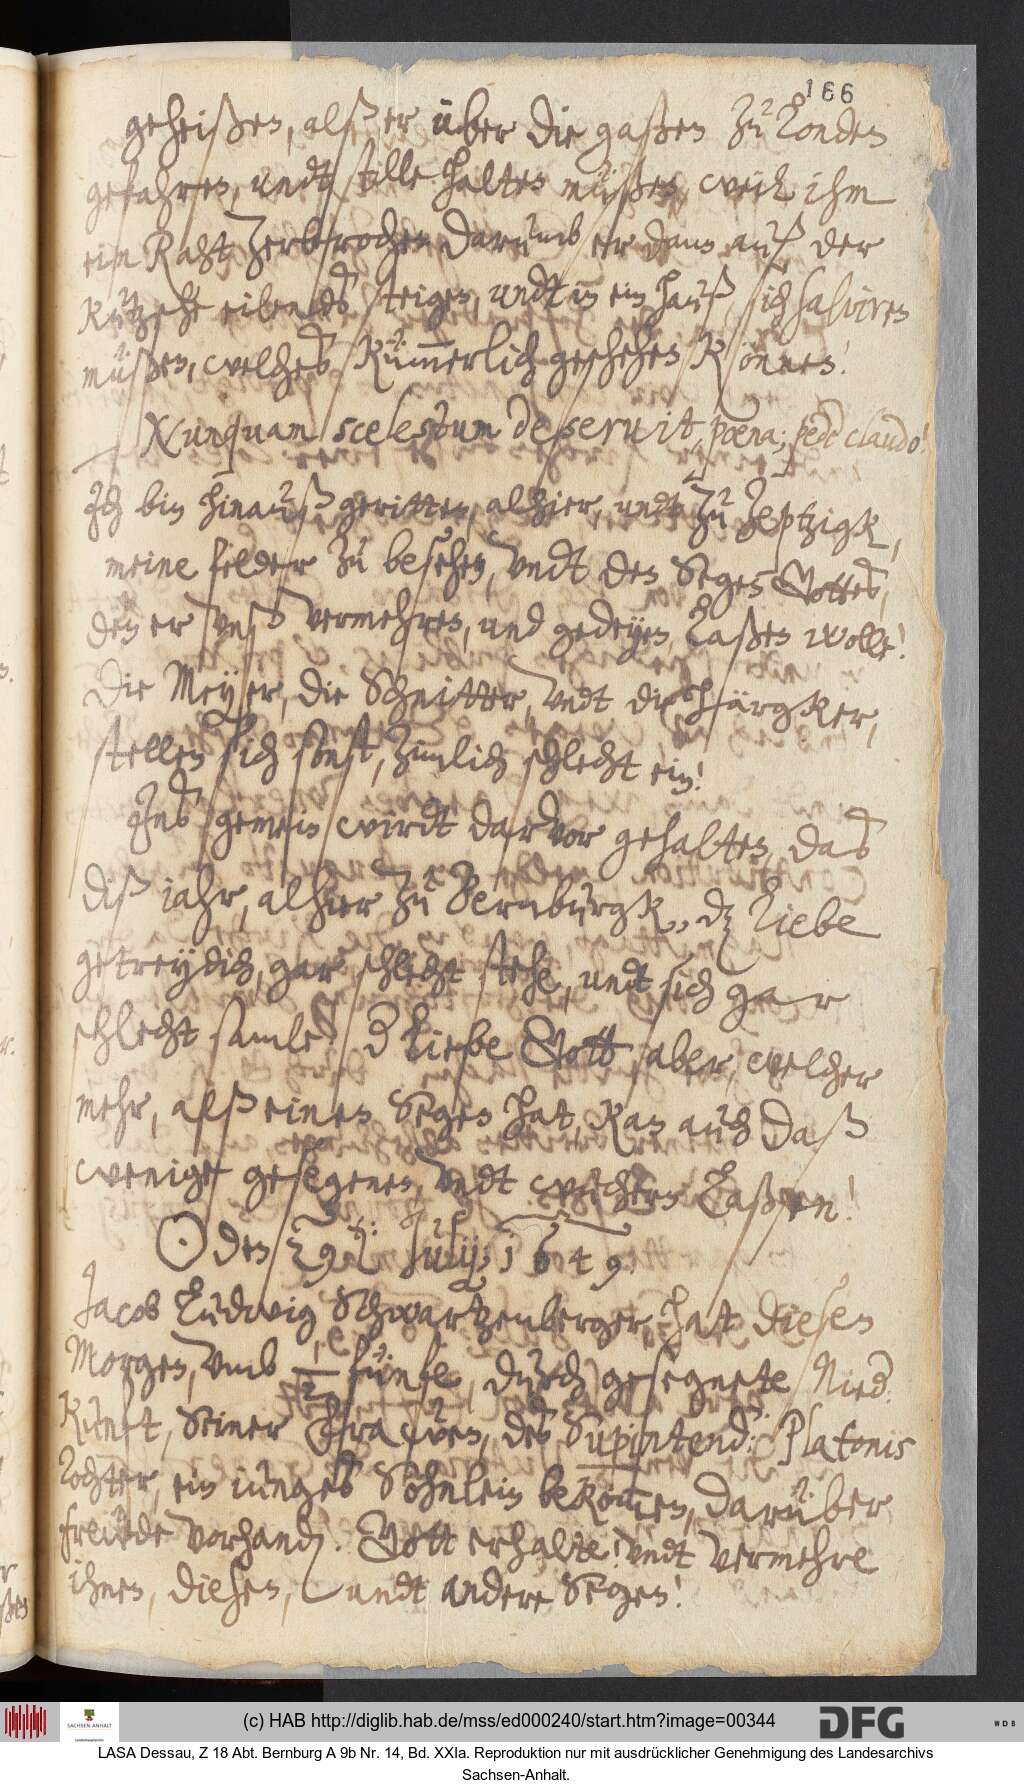 166
geheißen, alß er über die gaßen zu Londen
gefahren, undt stille halten müßen, weil ihm
ein Radt zerbrochen darumb er dann auß der
Kutzsche eilends steigen, undt in ein hauß, sich salviren
müßen, welches kümmerlich geschehen können!
Nunquam scelestum deseruit, poena; pede claudo!
Ich bin hinauß geritten, alhier, undt zu Zeptzigk,
meine felder zu besehen, undt den Segen Gottes,
den er unß vermehren, und gedeyen, laßen wolle!
Die Meyer, die Schnitter, undt die Härgker,
stellen sich sonst, zimlich schlecht ein!
Ins gemein wirdt darvor gehalten, das
diß jahr, alhier zu Bernburgk, dz liebe
getreydich, gar schlecht stehe, undt sich gar
schlecht samle. d liebe Gott aber, welcher
mehr, alß einen Segen hat, kan auch daß
wenige gesegenen, undt wuchern laßen!
☉ den 29t. July, 1649.
Jacob Ludwig Schwartzenberger, hat diesen
Morgen, umb ½ fünfe, durch gesegnete Nied.
Kunft, Seiner Ehefrawen, des Supintend: Platonis
Tochter, ein iunges Söhnlein bekommen, darüber
freude vorhanden. Gott erhalte! undt vermehre
ihnen, diesen, undt andere Segen!
SACHSEN-ANHALT
(c) HAB http://diglib.hab.de/mss/ed000240/start.htm?image=00344
DFG
WDB
LASA Dessau, Z 18 Abt. Bernburg A 9b Nr. 14, Bd. XXIa. Reproduktion nur mit ausdrücklicher Genehmigung des Landesarchivs
Sachsen-Anhalt.